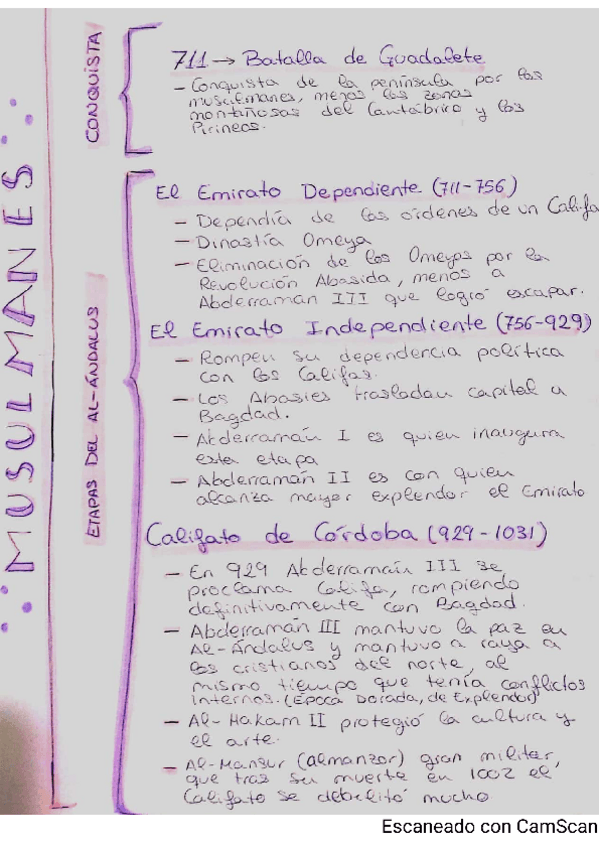 MUSULMANES
CONQUISTA
711 → Batalla de Guadalete
- Conquista de la península por los
musulmanes, menos las zonas
montañosas del Cantábrico y los
Pirineos.
ETAPAS DEL AL-ÁNDALUS
El Emirato Dependiente (711-756)
- Dependía de las órdenes de un Califa
- Dinastía Omeya
- Eliminación de los Omeyas por la
Revolución Abasida, menos a
Abderraman III que logró escapar.
El Emirato Independiente (756-929)
- Rompen su dependencia política
con los Califas.
- Los Abasies trasladan capital a
Bagdad.
- Abderramán I es quien inaugura
esta etapa
- Abderramán II es con quien
alcanza mayor explendor el Emirato
Califato de Córdoba (929-1031)
- En 929 Abderramán III se
proclama Califa, rompiendo
definitivamente con Bagdad.
- Abderramán III mantuvo la paz en
Al-Ándalus y mantuvo a raya a
los cristianos del norte, al
mismo tiempo que tenía conflictos
internos. (Época Dorada, de Explendor)
- Al-Hakam II protegió la cultura y
el arte.
- Al-Mansur (almanzor) gran militar,
que tras su muerte en 1002 el
Califato se debilitó mucho
Escaneado con CamScan